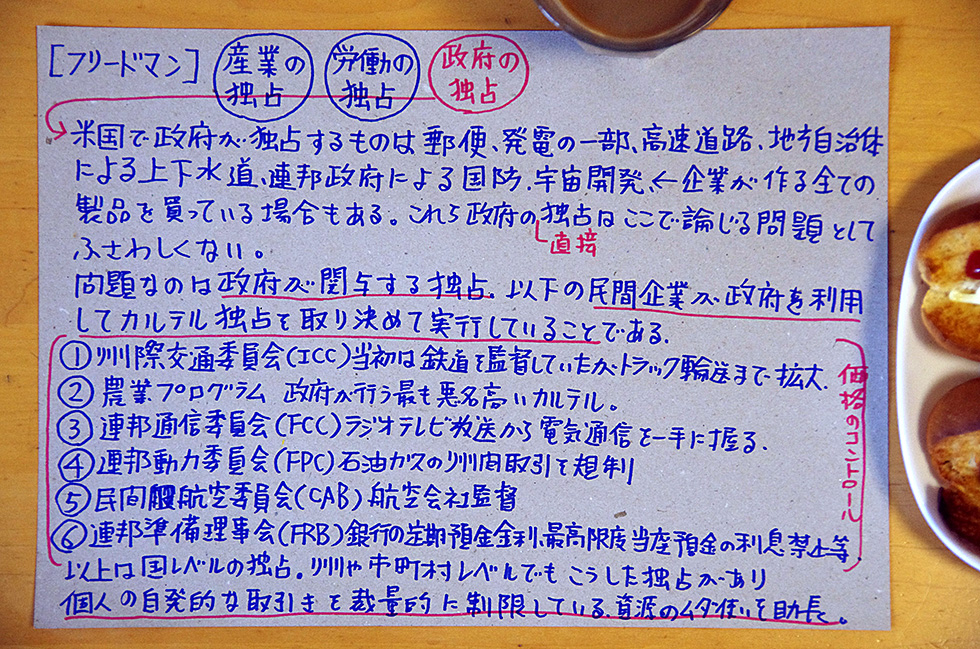 [フリードマン] 産業の独占 労働の独占 政府の独占
米国で政府が独占するものは郵便、発電の一部、高速道路、地方自治体
による上下水道、連邦政府による国防、宇宙開発、←企業が作る全ての
製品を買っている場合もある。これら政府の独占はここで論じる問題として
直接
ふさわしくない。
問題なのは政府が関与する独占。以下の民間企業が政府を利用
してカルテル独占を取り決めて実行していることである。
①州際交通委員会(ICC)当初は鉄道を監督していたがトラック輸送まで拡大、
②農業プログラム 政府が行う最も悪名高いカルテル。
③連邦通信委員会(FCC)ラジオテレビ放送から電気通信を一手に握る、
④連邦動力委員会(FPC)石油ガスの州間取引を規制
⑤民間航空委員会(CAB)航空会社監督
⑥連邦準備理事会(FRB)銀行の定期預金金利、最高限度当座預金の利息禁止等
価格のコントロール
以上は国レベルの独占。州や市町村レベルでもこうした独占があり
個人の自発的な取引きを裁量的に制限している、資源のムダ使いを助長。